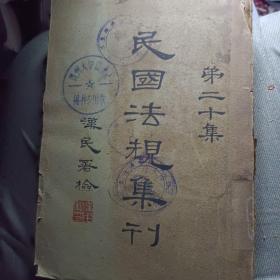 第二十集
民國法規集刊
漢民署檢